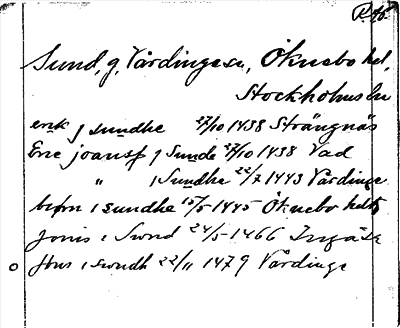 R. 46.
Sund, g, Vårdinge sn, Öknebo hd,
Stockholms ln
erik j sundhe 27/10 1438 Strängnäs
Eric joansš j Sunde 27/10 1438 Vad
" i Sundhe 22/7 1443 Vårdinge
biørn i sundhe 15/5 1445 Öknebo hds
Jønis i Swnd 24/5 1466
Jøns i swndh 22/11 1479 Vårdinge